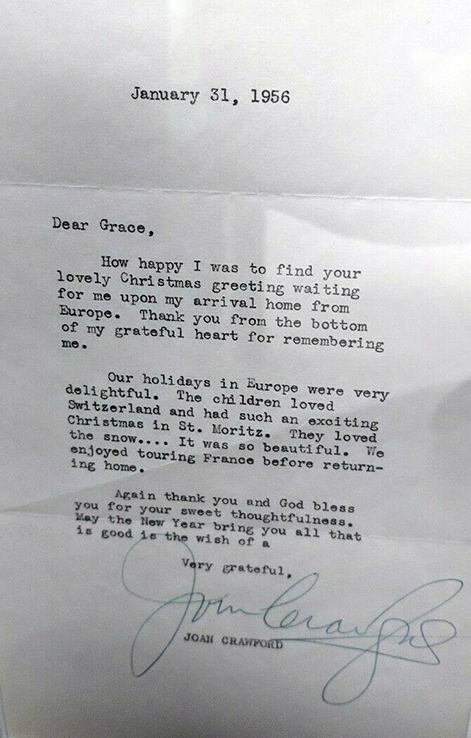 January 31, 1956
Dear Grace,
How happy I was to find your
lovely Christmas greeting waiting
for me upon my arrival home from
Europe. Thank you from the bottom
of my grateful heart for remembering
me.
Our holidays in Europe were very
delightful. The children loved
Switzerland and had such an exciting
Christmas in St. Moritz. They loved
the snow.... It was so beautiful. We
enjoyed touring France before return-
ing home.
Again thank you and God bless
you for your sweet thoughtfulness.
May the New Year bring you all that
is good is the wish of a
Very grateful,
Joan Crawford
JOAN CRAWFORD